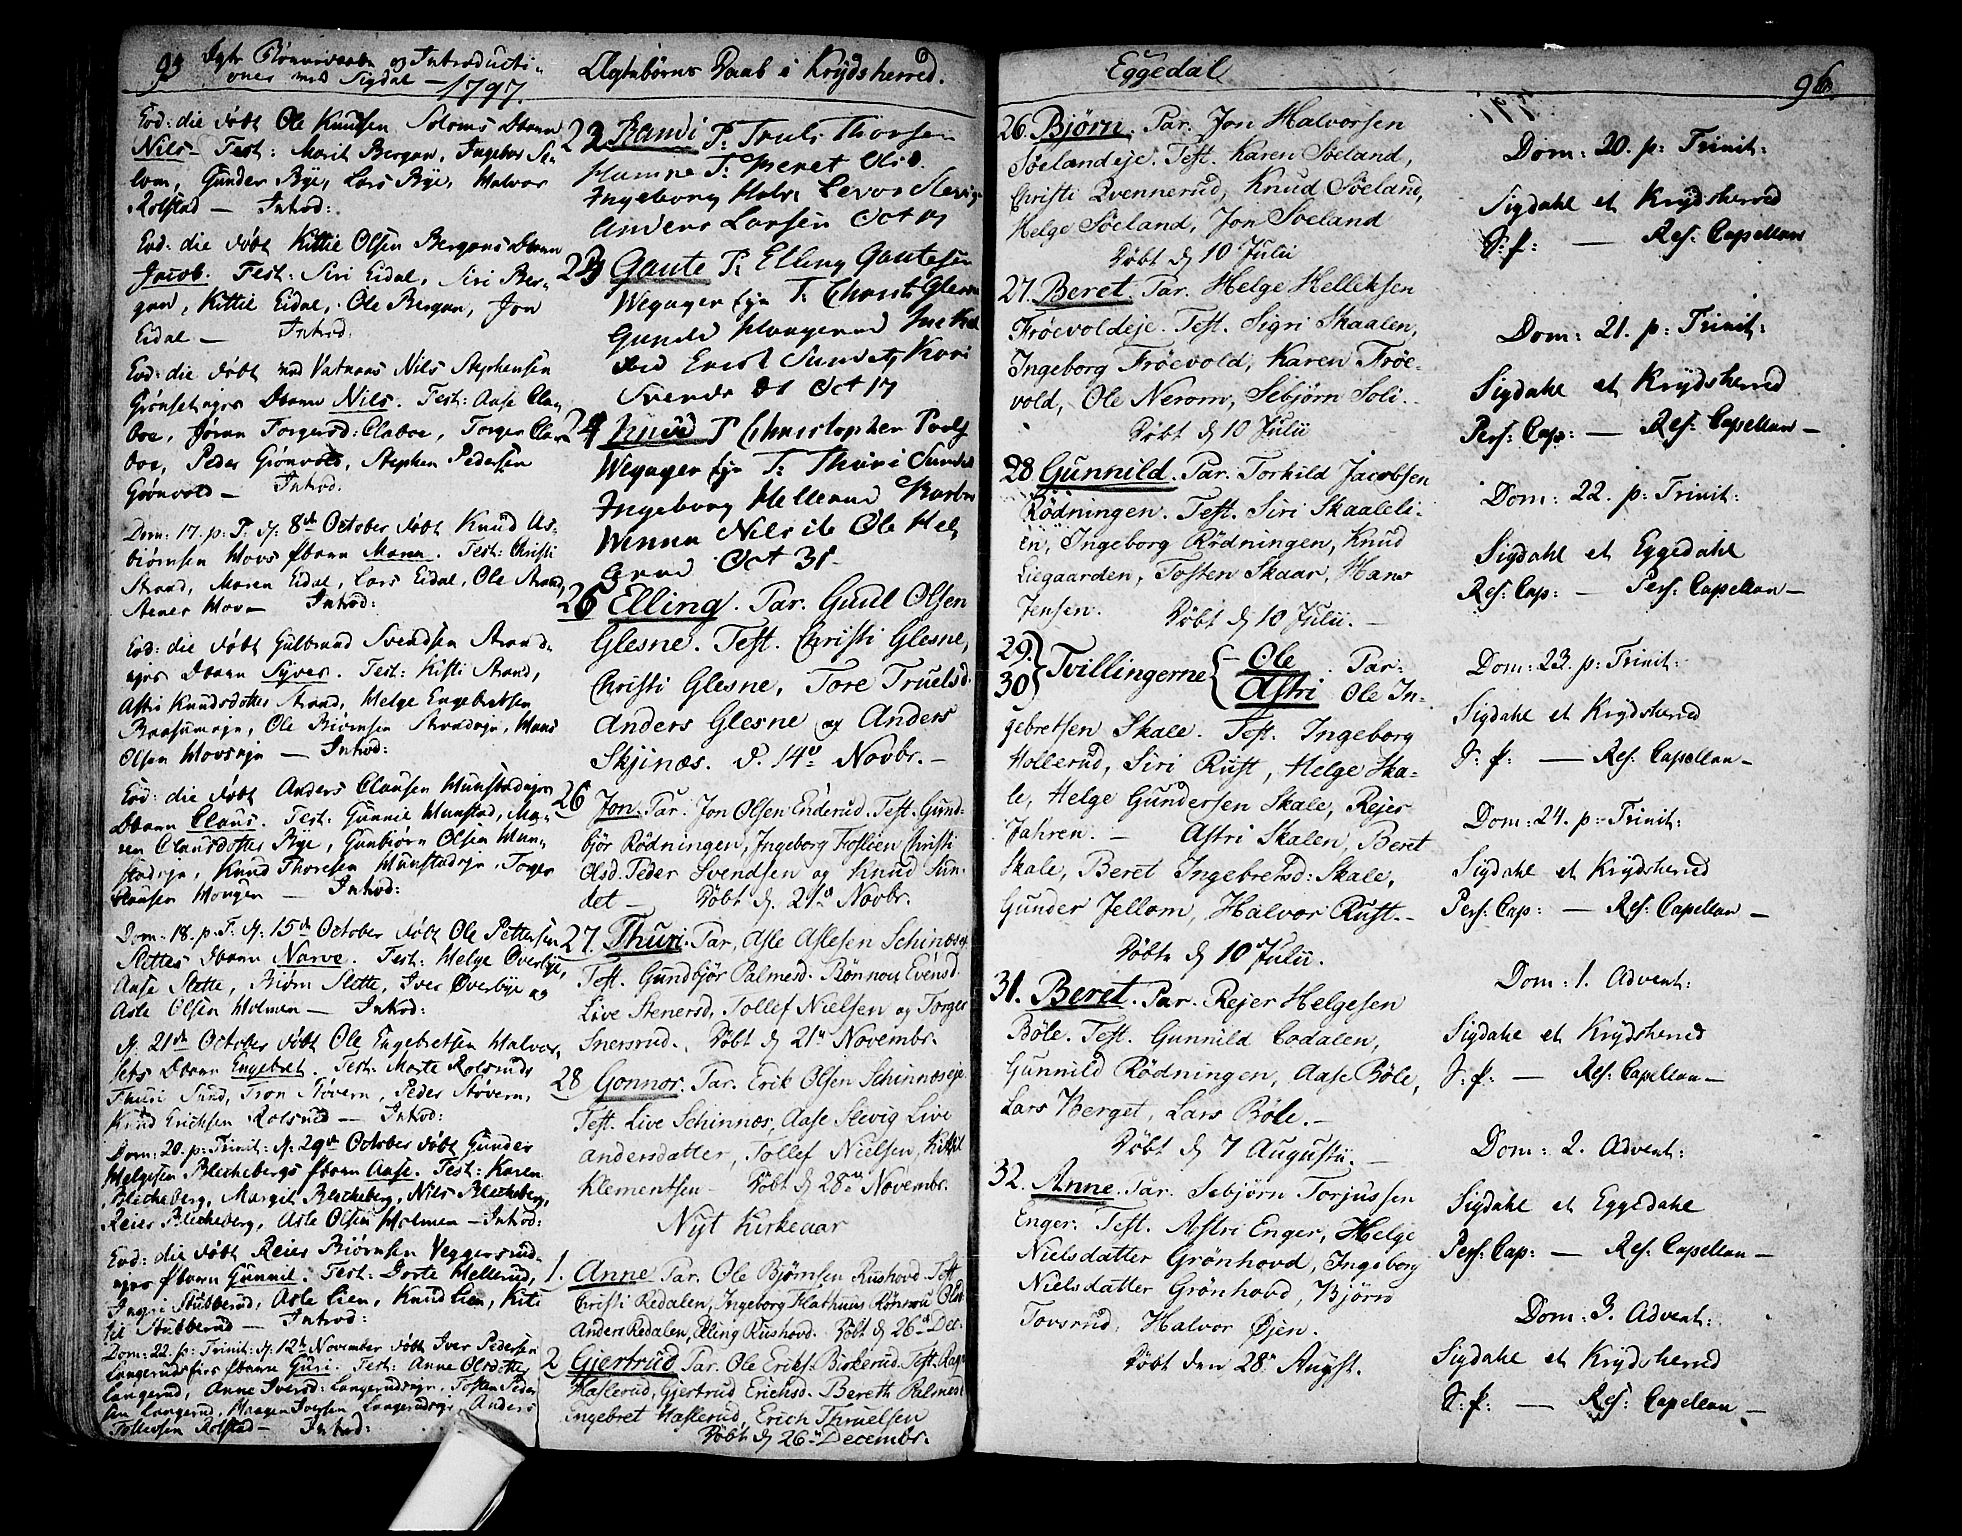 93 Egte Børnedaab og Introducti-
oner ved Sigdal — 1797.
Eod: die døbt Ole Knudsen Soloms Dbarn
Nils — Test: Marit Bergan, Ingebor So-
lom, Gunder Bye, Lars Bye, Halvor
Rolstad — Introd:
Eod: die døbt Kittil Olsen Bergans Dbarn
Jacob. Test: Siri Eidal, Siri Ber-
gan, Kittil Eidal, Ole Bergan, Jon
Eidal — Introd:
Eod: die døbt Nils Stephensen
Dbarn Nils. Test: Aase Cla-
boe, Jøran Torgersd: Claboe, Torger Cla-
boe, Peder Grønvold, Stephen Pedersen
Grønvold — Introd:
Dom: 17. p: T. d: 8de October døbt Knud As-
biørnsen Hovs Pbarn Maren. Test: Christi
Strand, Maren Eidal, Lars Eidal, Ole Strand,
Stener Hov — Introd:
Eod: die døbt Gulbrand Svendsen Strand-
ejes Dbarn Syver. Test: Kisti Strand,
Astri Knudsdotter Strand, Helge Engebretsen
Ole Biørnsen Strandeje, Hans
Olsen Hovseje — Introd:
Eod: die døbt Anders Clausen Hunstadejes
Dbarn Claus. Test: Gunnil Hunstad, Ma-
ren Clausdotter Bye, Gunbiørn Olsen Hun-
stadeje, Knud Thoresen Hunstadeje, Torger
Clausen Haugen — Introd:
Dom: 18. p. T. d: 15de October døbt Ole Pettersen
Slettes Dbarn Narve. Test: Helge Overbye,
Aase Slette, Biørn Slette, Iver Overbye og
Asle Olsen Holmen — Introd:
d. 21de October døbt Ole Engebretsen Halvor-
sets Dbarn Engebret. Test: Marte Rolsrud
Thuri Sund, Tron Støvern, Peder Støvern,
Knud Erichsen Rolsrud — Introd:
Dom: 20. p: Trinit: d: 29de October døbt Gunder
Helgesen Blecheberg Pbarn Aase. Test: Karen
Blecheberg, Margit Blecheberg, Nils Blecheberg,
Reier Blecheberg, Asle Olsen Holmen — Introd:
Eod: die døbt Reier Biørnsen Veggersrud-
ejes Pbarn Gunnil. Test: Dorte Hellerud,
Ingri Stubberud, Asle Lien, Knud Lien, Kit-
til Stubberud — Introd:
Dom: 22. p: Trinit: d. 12te November døbt Iver Pedersen
Langerudejes Pbarn Guri. Test: Anne Olsdotter
Langerud, Anne Iversd: Langerudeje, Tosten Peder-
sen Langerud, Haagen Iversen Langerudeje, Anders
Tollefsen Rolstad — Introd:
Ægtebørns Daab i Krydsherred.
23. Randi P: Truls Thorsen
Hamre T: Beret Olsd.
Ingeborg Halv: Levor Slevig
Anders Larsen Oct 17
23 Gaute P: Elling Gautesen
Wegager eje T: Christi Glesne
Gunild
Erich Sundet
Svends dt Oct 17
24 Knud P Christopher
Wegager eje T: Thuri Sundet
Ingeborg Hellerud
Nils Ole Hel-
lerud Oct 31
26 Elling. Par. Guul Olsen
Glesne. Test. Christi Glesne,
Christi Glesne, Tore Truelsd.
Anders Glesne og Anders
Skjinæs. d. 14de Novbr. —
26 Jon. Par. Jon Olsen Enderud. Test. Gund-
bjør Rödningen, Ingeborg Foslien Christi
Olsd. Peder Svendsen og Knud Sun-
det — Døbt d. 21de Novbr.
27. Thuri. Par. Asle Aslesen Schinnæs eje
Test. Gundbjør Palmesd. Rönnou Evensd.
Live Stenersd, Tollef Nielsen og Torger
Snersrud. Døbt d. 21de Novembr.
28 Gonnor. Par. Erik Olsen Schinnæseje
Test. Live Schinnæs, Aase Slevig Live
andersdatter, Tollef Nielsen, Kittil
Klementsen — Døbt d. 28de Novembr.
Nyt Kirkeaar
1. Anne Par. Ole Bjørnsen Rushovd Test
Christi Redalen, Ingeborg Flathuus Rönnou Olsd
Anders Redalen, Elling Rushovd. Døbt d. 26de Dec:
2 Gjertrud Par. Ole Eriks. Birkerud. Test. Rag
Haslerud, Gjertrud Erichsd. Bereth Palmesd
Ingebret Haslerud, Erich Thruelsen
Døbt d. 26de Decembr.
Eggedal
26. Bjørn. Par. Jon Halvorsen
Søelandeje. Test. Karen Søeland,
Christi Qvennerud, Knud Søeland,
Helge Søeland, Jon Søeland
Døbt d. 10 Julii
27. Beret. Par. Helge Helleksen
Frøevoldeje. Test. Sigri Skaalen,
Ingeborg Frøevold, Karen Frøe-
vold, Ole Nerom, Sebjørn Soli.
Døbt d. 10 Julii
28 Gunnild. Par. Torkild Jacobsen
Rødningen. Test. Siri Skaaleli-
en, Ingeborg Rødningen, Knud
Liegaarden, Tosten Skaar, Hans
Jensen. Døbt d. 10 Julii. —
29. 30 Tvillingerne Ole Astri. Par.
Ole In-
gebretsen Skale. Test. Ingeborg
Hollerud, Siri Rust, Helge Ska-
le, Helge Gundersen Skale, Rejer
Jahren. — Astri Skalen, Beret
Skale, Beret Ingebretsd: Skale,
Gunder Jellom, Halvor Rust. —
Døbte d. 10 Julii.
31. Beret. Par. Rejer Helgesen
Bøle. Test. Gunnild Codalen,
Gunnild Rødningen, Aase Bøle,
Lars Berget, Lars Bøle. —
Døbt d. 7 Augustii. —
32. Anne. Par. Sebjørn Torjussen
Enger. Test. Astri Enger, Helge
Nielsdatter Grönhovd, Ingeborg
Nielsdatter Grönhovd, Bjørn
Tovsrud, Halvor Øjen.
Døbt den 28de August.
96.
Dom: 20. p: Trinit:
Sigdahl et Krydsherred
S: f: — Res: Capellan
Dom: 21. p: Trinit:
Sigdahl et Krydsherred
Pers: Cap: — Res: Capellan —
Dom: 22. p: Trinit:
Sigdahl et Eggedahl
Res: Cap: — Pers: Capellan —
Dom: 23. p: Trinit:
Sigdahl et Krydsherred
S: f: — Res: Capellan —
Dom: 24. p: Trinit:
Sigdahl et Krydsherred
Pers: Cap: — Res: Capellan —
Dom: 1. Advent:
Sigdahl et Krydsherred
S: f: — Res: Capellan —
Dom: 2. Advent:
Sigdahl et Eggedahl
Pers: Cap: — Res: Capellan —
Dom: 3. Advent:
Sigdahl et Krydsherred
S: f: — Res: Capellan —